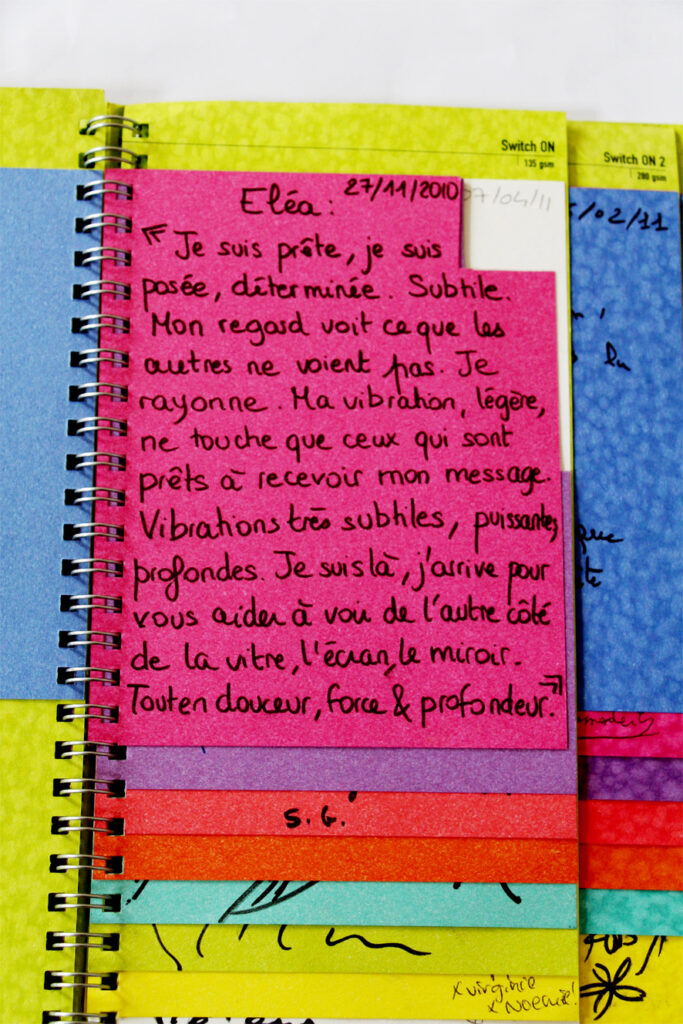 Switch ON
135 gsm
Switch ON 2
280 gsm
27/11/2010
07/04/11
/02/11
Eléa :
« Je suis prête, je suis
posée, déterminée. Subtile.
Mon regard voit ce que les
autres ne voient pas. Je
rayonne. Ma vibration, légère,
ne touche que ceux qui sont
prêts à recevoir mon message.
Vibrations très subtiles, puissantes,
profondes. Je suis là, j'arrive pour
vous aider à voir de l'autre côté
de la vitre, l'écran, le miroir.
Tout en douceur, force & profondeur. »
S. G.
x virginie
x Noemie!